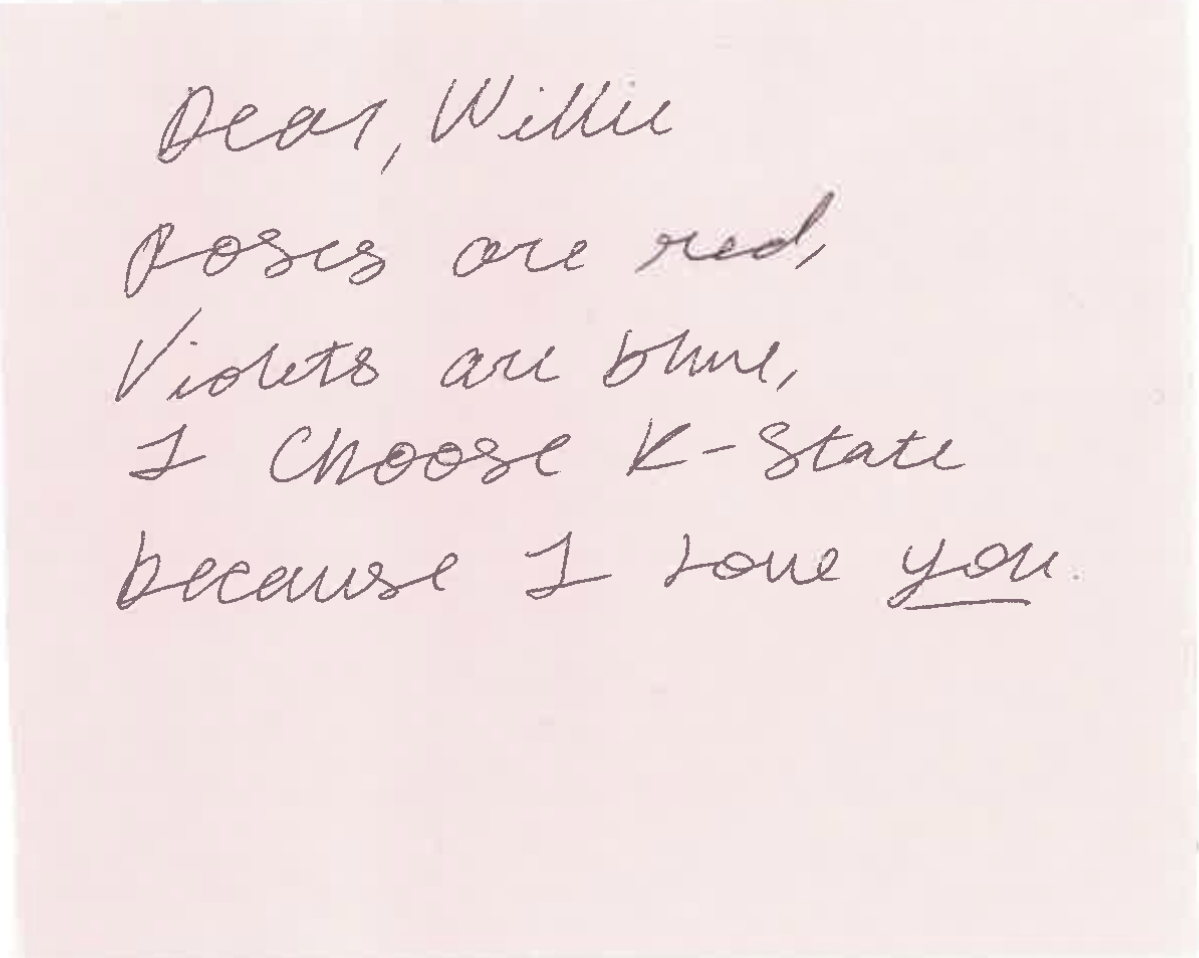 Dear, Willie
Roses are red,
Violets are blue,
I Choose K-State
because I Love you.